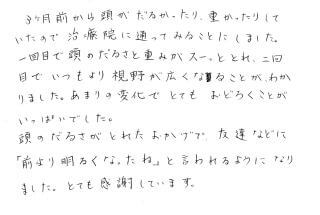 3ケ月前から頭がだるかったり、重かったりして
いたので治療院に通ってみることにしました。
一回目で頭のだるさと重みがスーッととれ、二回
目でいつもより視野が広くなることがわか
りました。あまりの変化でとてもおどろくことが
いっぱいでした。
頭のだるさがとれたおかげで、友達などに
「前より明るくなったね。」と言われるようになり
ました。とても感謝しています。